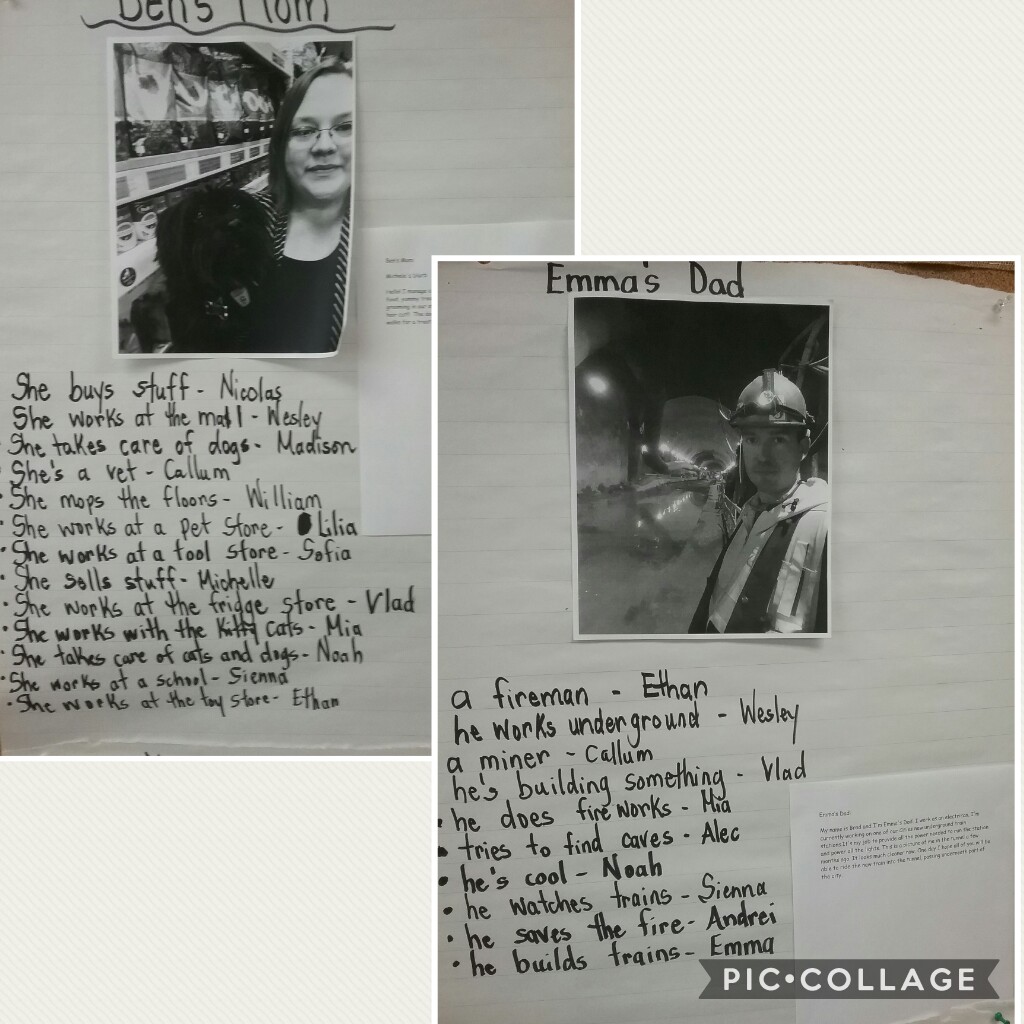 Ben's Mom
She buys stuff - Nicolas
She works at the mall - Wesley
She takes care of dogs - Madison
She's a vet - Callum
She mops the floors - William
She works at a pet store - Lilia
She works at a tool store - Sofia
She sells stuff - Michelle
She works at the fridge store - Vlad
She works with the kitty cats - Mia
She takes care of cats and dogs - Noah
She works at a school - Sienna
She works at the toy store - Ethan
Ben's Mom:
Emma's Dad
a fireman - Ethan
he works underground - Wesley
a miner - Callum
he's building something - Vlad
he does fireworks - Mia
tries to find caves - Alec
he's cool - Noah
he watches trains - Sienna
he saves the fire - Andrei
he builds trains - Emma
Emma's Dad:
My name is Brad and I'm Emma's Dad. I work as an electrician. I'm
currently working on one of our cities new underground train
stations. It's my job to provide all the power needed to run the station
and power all the lights. This is a picture of me in the tunnel a few
months ago. It looks much cleaner now. One day I hope all of you will be
able to ride the new train into the tunnel, passing underneath part of
the city.
PIC•COLLAGE